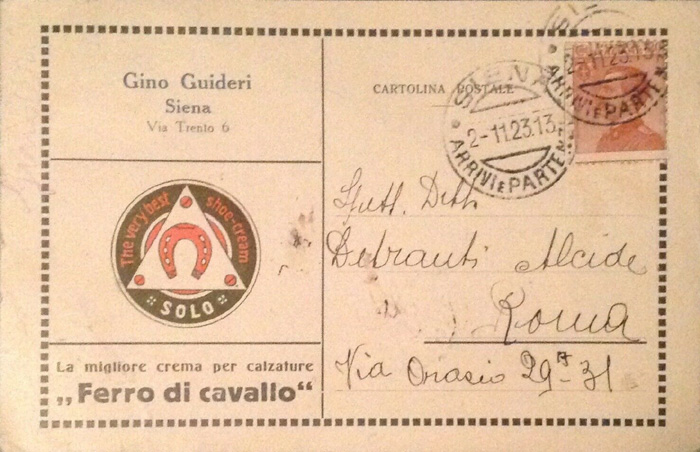 Gino Guideri
Siena
Via Trento 6
The very best shoe-cream
SOLO
La migliore crema per calzature
„Ferro di cavallo“
CARTOLINA POSTALE
SIENA
2-11.23.13
ARRIVI E PARTENZ
SI
2-11.23.13
ARRIVI E PARTEN
Spett. Ditta
Debranti Alcide
Roma
Via Orasio 29A-31